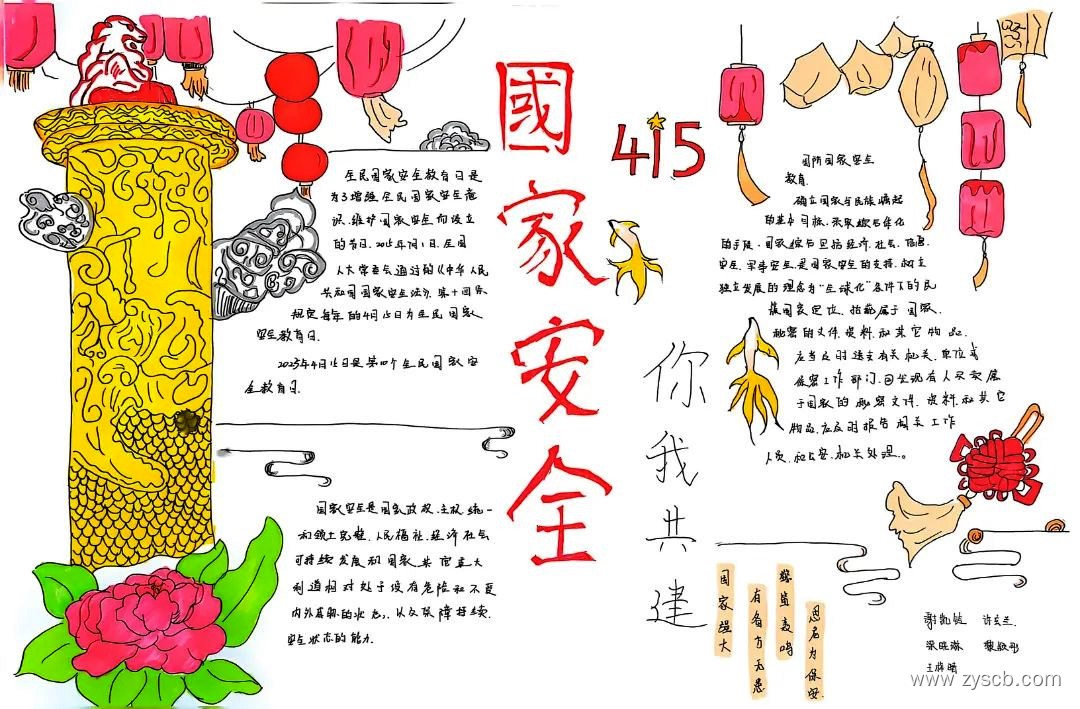 國家安全
415
你我共建
全民国家安全教育日是
为了增强全民国家安全意
识,维护国家安全而设立
的节日。2015年7月1日,全国
人大常委会通过的《中华人民
共和国国家安全法》第十四条
规定每年的4月15日为全民国家
安全教育日。
2023年4月15日是第个全民国家安
全教育日。
国家安全是国家政权、主权、统一
和领土完整、人民福祉、经济社会
可持续发展和国家其他重大
利益相对处于没有危险和不受
内外威胁的状态,以及保障持续
安全状态的能力。
国防国家安全
教育。
确立国家与民族崛起
的手段。国家被与包括经济、社会、信息
安全,军事安全是国家安全的支持,树立
独立发展的理念为"全球化"条件下的民
族国家定位,拾获属于国家
秘密的文件、资料和其它物品,
应当及时送交有关机关、单位或
保密工作部门,发现有人买卖属
于国家的秘密文件、资料和其它
物品,应及时报告有关工作
人员、和公安、机关处理。
国家强大
有备无患
警钟
居为保安
梁晓琳
www.zyscb.com